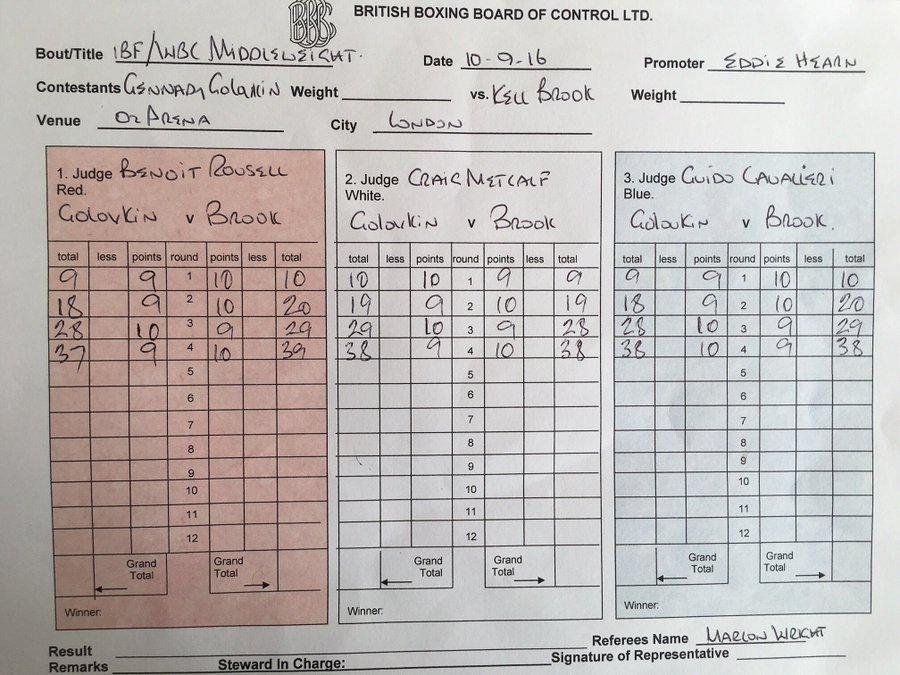 BBBC
BRITISH BOXING BOARD OF CONTROL LTD.
Bout/Title IBF/WBC MIDDLEWEIGHT. Date 10-9-16 Promoter EDDIE HEARN
Contestants GENNADY GOLOVKIN Weight vs. KELL BROOK Weight
Venue O2 ARENA City LONDON
1. Judge BENOIT ROUSELL
Red.
GOLOVKIN v BROOK
total less points round points less total
9 9 1 10 10
18 9 2 10 20
28 10 3 9 29
37 9 4 10 39
5
6
7
8
9
10
11
12
Grand Grand
Total Total
Winner:
2. Judge CRAIG METCALF
White.
GOLOVKIN v BROOK
total less points round points less total
10 10 1 9 9
19 9 2 10 19
29 10 3 9 28
38 9 4 10 38
5
6
7
8
9
10
11
12
Grand Grand
Total Total
Winner:
3. Judge GUIDO CAVALIERI
Blue.
GOLOVKIN v BROOK.
total less points round points less total
9 9 1 10 10
18 9 2 10 20
28 10 3 9 29
38 10 4 9 38
5
6
7
8
9
10
11
12
Grand Grand
Total Total
Winner:
Result Referees Name MARLON WRIGHT
Remarks Steward In Charge: Signature of Representative